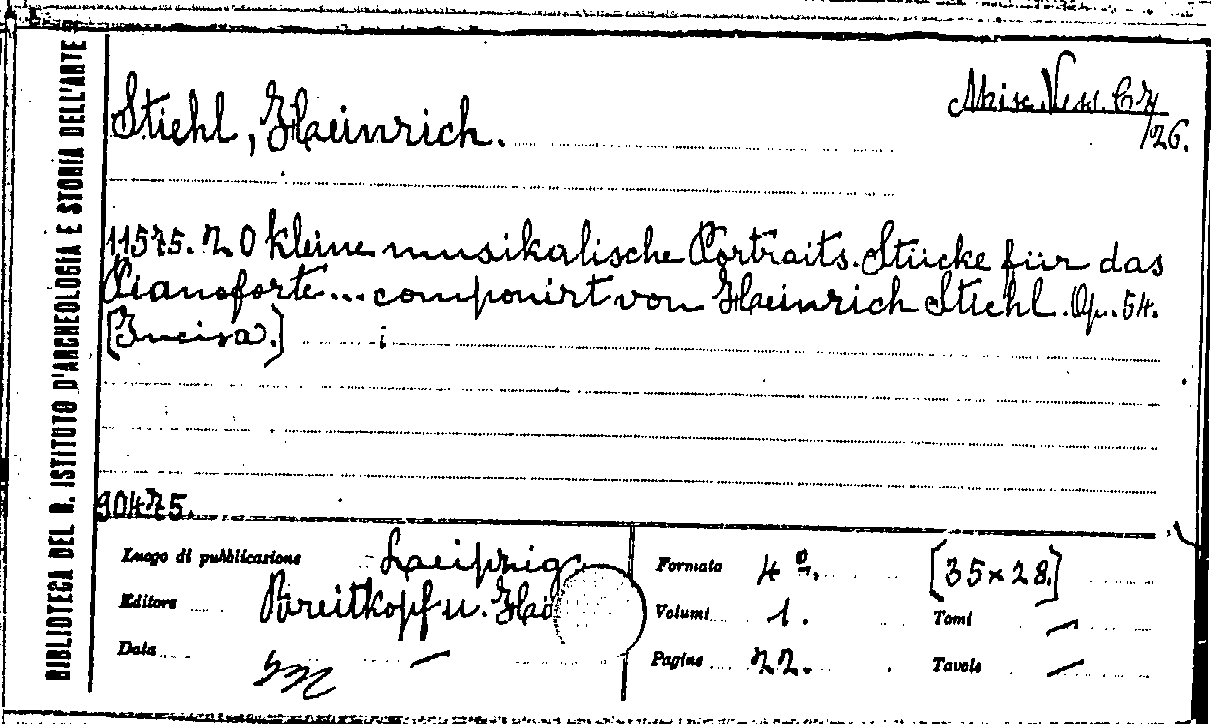 BIBLIOTECA DEL R. ISTITUTO D'ARCHEOLOGIA E STORIA DELL'ARTE
Stiehl, Heinrich.
Misc. Vess. C 7/26.
11575. 20 kleine musikalische Portraits. Stücke für das
Pianoforte... componirt von Heinrich Stiehl. Op. 54.
[Incisa.]
90475.
Luogo di pubblicazione Leipzig
Editore Breitkopf u. Hä
Data —
Formata 4º. [35×28.]
Volumi 1. Tomi —
Pagine 22. Tavole —